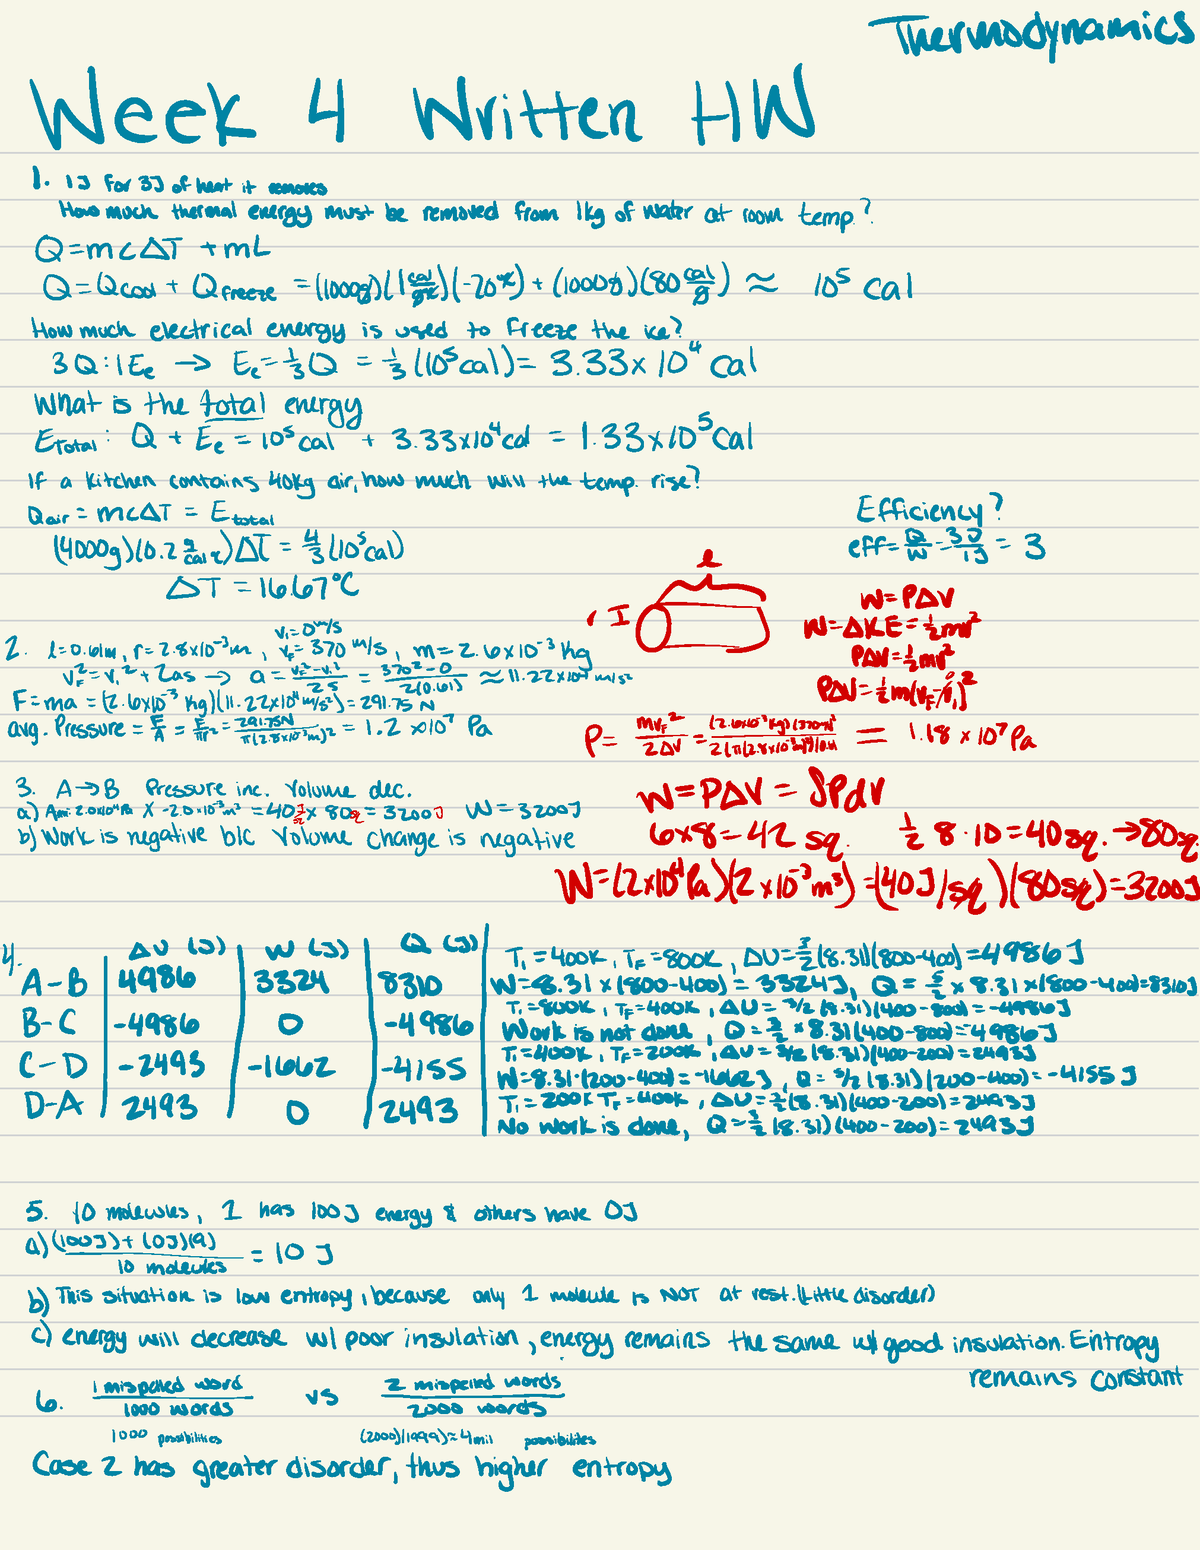 Thermodynamics
Week 4 Written HW
1. 1J for 3J of heat it removes
How much thermal energy must be removed from 1kg of water at room temp?
Q=mcΔT +mL
Q=Qcool + Qfreeze = (1000g)(1 cal/g°C)(-20°C) + (1000g)(80 cal/g) ≈ 10⁵ cal
How much electrical energy is used to freeze the ice?
3Q:1Ee → Ee=⅓Q = ⅓(10⁵cal)= 3.33x10⁴ cal
What is the total energy
Etotal: Q + Ee = 10⁵cal + 3.33x10⁴cal = 1.33x10⁵cal
If a kitchen contains 40kg air, how much will the temp. rise?
Qair = mcΔT = Etotal
(4000g)(0.2 ΔT = 4/3(10⁵cal)
ΔT = 16.67°C
Efficiency?
eff=Q/W=3J/1J = 3
l
r
W=PΔV
W=ΔKE=½mv²
PΔV=½mv²
PΔV=½m(vF-vi)²
P= mvF²/2ΔV = = 1.18 x 10⁷Pa
2. l=0.61m, r=2.8x10⁻³m, vi=0m/s vF=370 m/s, m=2.6x10⁻³kg
vF²=vi²+2as → a= vF²-vi²/2s = 370²-0/2(0.61) ≈11.22x10⁴m/s²
F=ma =(2.6x10⁻³kg)(11.22x10⁴m/s²)=291.75 N
avg. Pressure = F/A = F/πr² = 291.75N/π(2.8x10⁻³m)² = 1.2 x10⁷ Pa
3. A→B Pressure inc. Volume dec.
a) 2.0x10⁴Pa x -2.0x10⁻³m³ =40 J/sq x 80sq=3200J W=3200J
b) Work is negative b/c Volume change is negative
W=PΔV = ∫PdV
6x8=42 sq. ½ 8·10=40sq.→80sq.
W=(2x10⁴Pa)(2x10⁻³m³)=(40J/sq)(80sq)=3200J
4. ΔU (J) W (J) Q (J)
A-B 4986 3324 8310
B-C -4986 0 -4986
C-D -2493 -1662 -4155
D-A 2493 0 2493
Ti=400K, TF=800K, ΔU=3/2(8.31)(800-400)=4986J
W=8.31x(800-400)=3324J, Q=5/2x8.31x(800-400)=8310J
Ti=800K, TF=400K, ΔU=3/2(8.31)(400-800)=-4986J
Work is not done, Q=3/2x8.31(400-800)=-4986J
Ti=400K, TF=200K, ΔU=3/2(8.31)(400-200)=2493J
W=8.31·(200-400)=-1662J, Q=5/2(8.31)(200-400)=-4155J
Ti=200K TF=400K, ΔU=3/2(8.31)(400-200)=2493J
No work is done, Q=3/2(8.31)(400-200)=2493J
5. 10 molecules, 1 has 100J energy & others have 0J
a) (100J)+(0J)(9)/10 molecules = 10 J
b) This situation is low entropy, because only 1 molecule is NOT at rest. (Little disorder)
c) energy will decrease w/ poor insulation, energy remains the same w/ good insulation. Entropy
remains constant
6. 1 mispelled word/1000 words vs 2 mispelled words/2000 words
1000 possibilities (2000)(1999)≈4mil possibilities
Case 2 has greater disorder, thus higher entropy